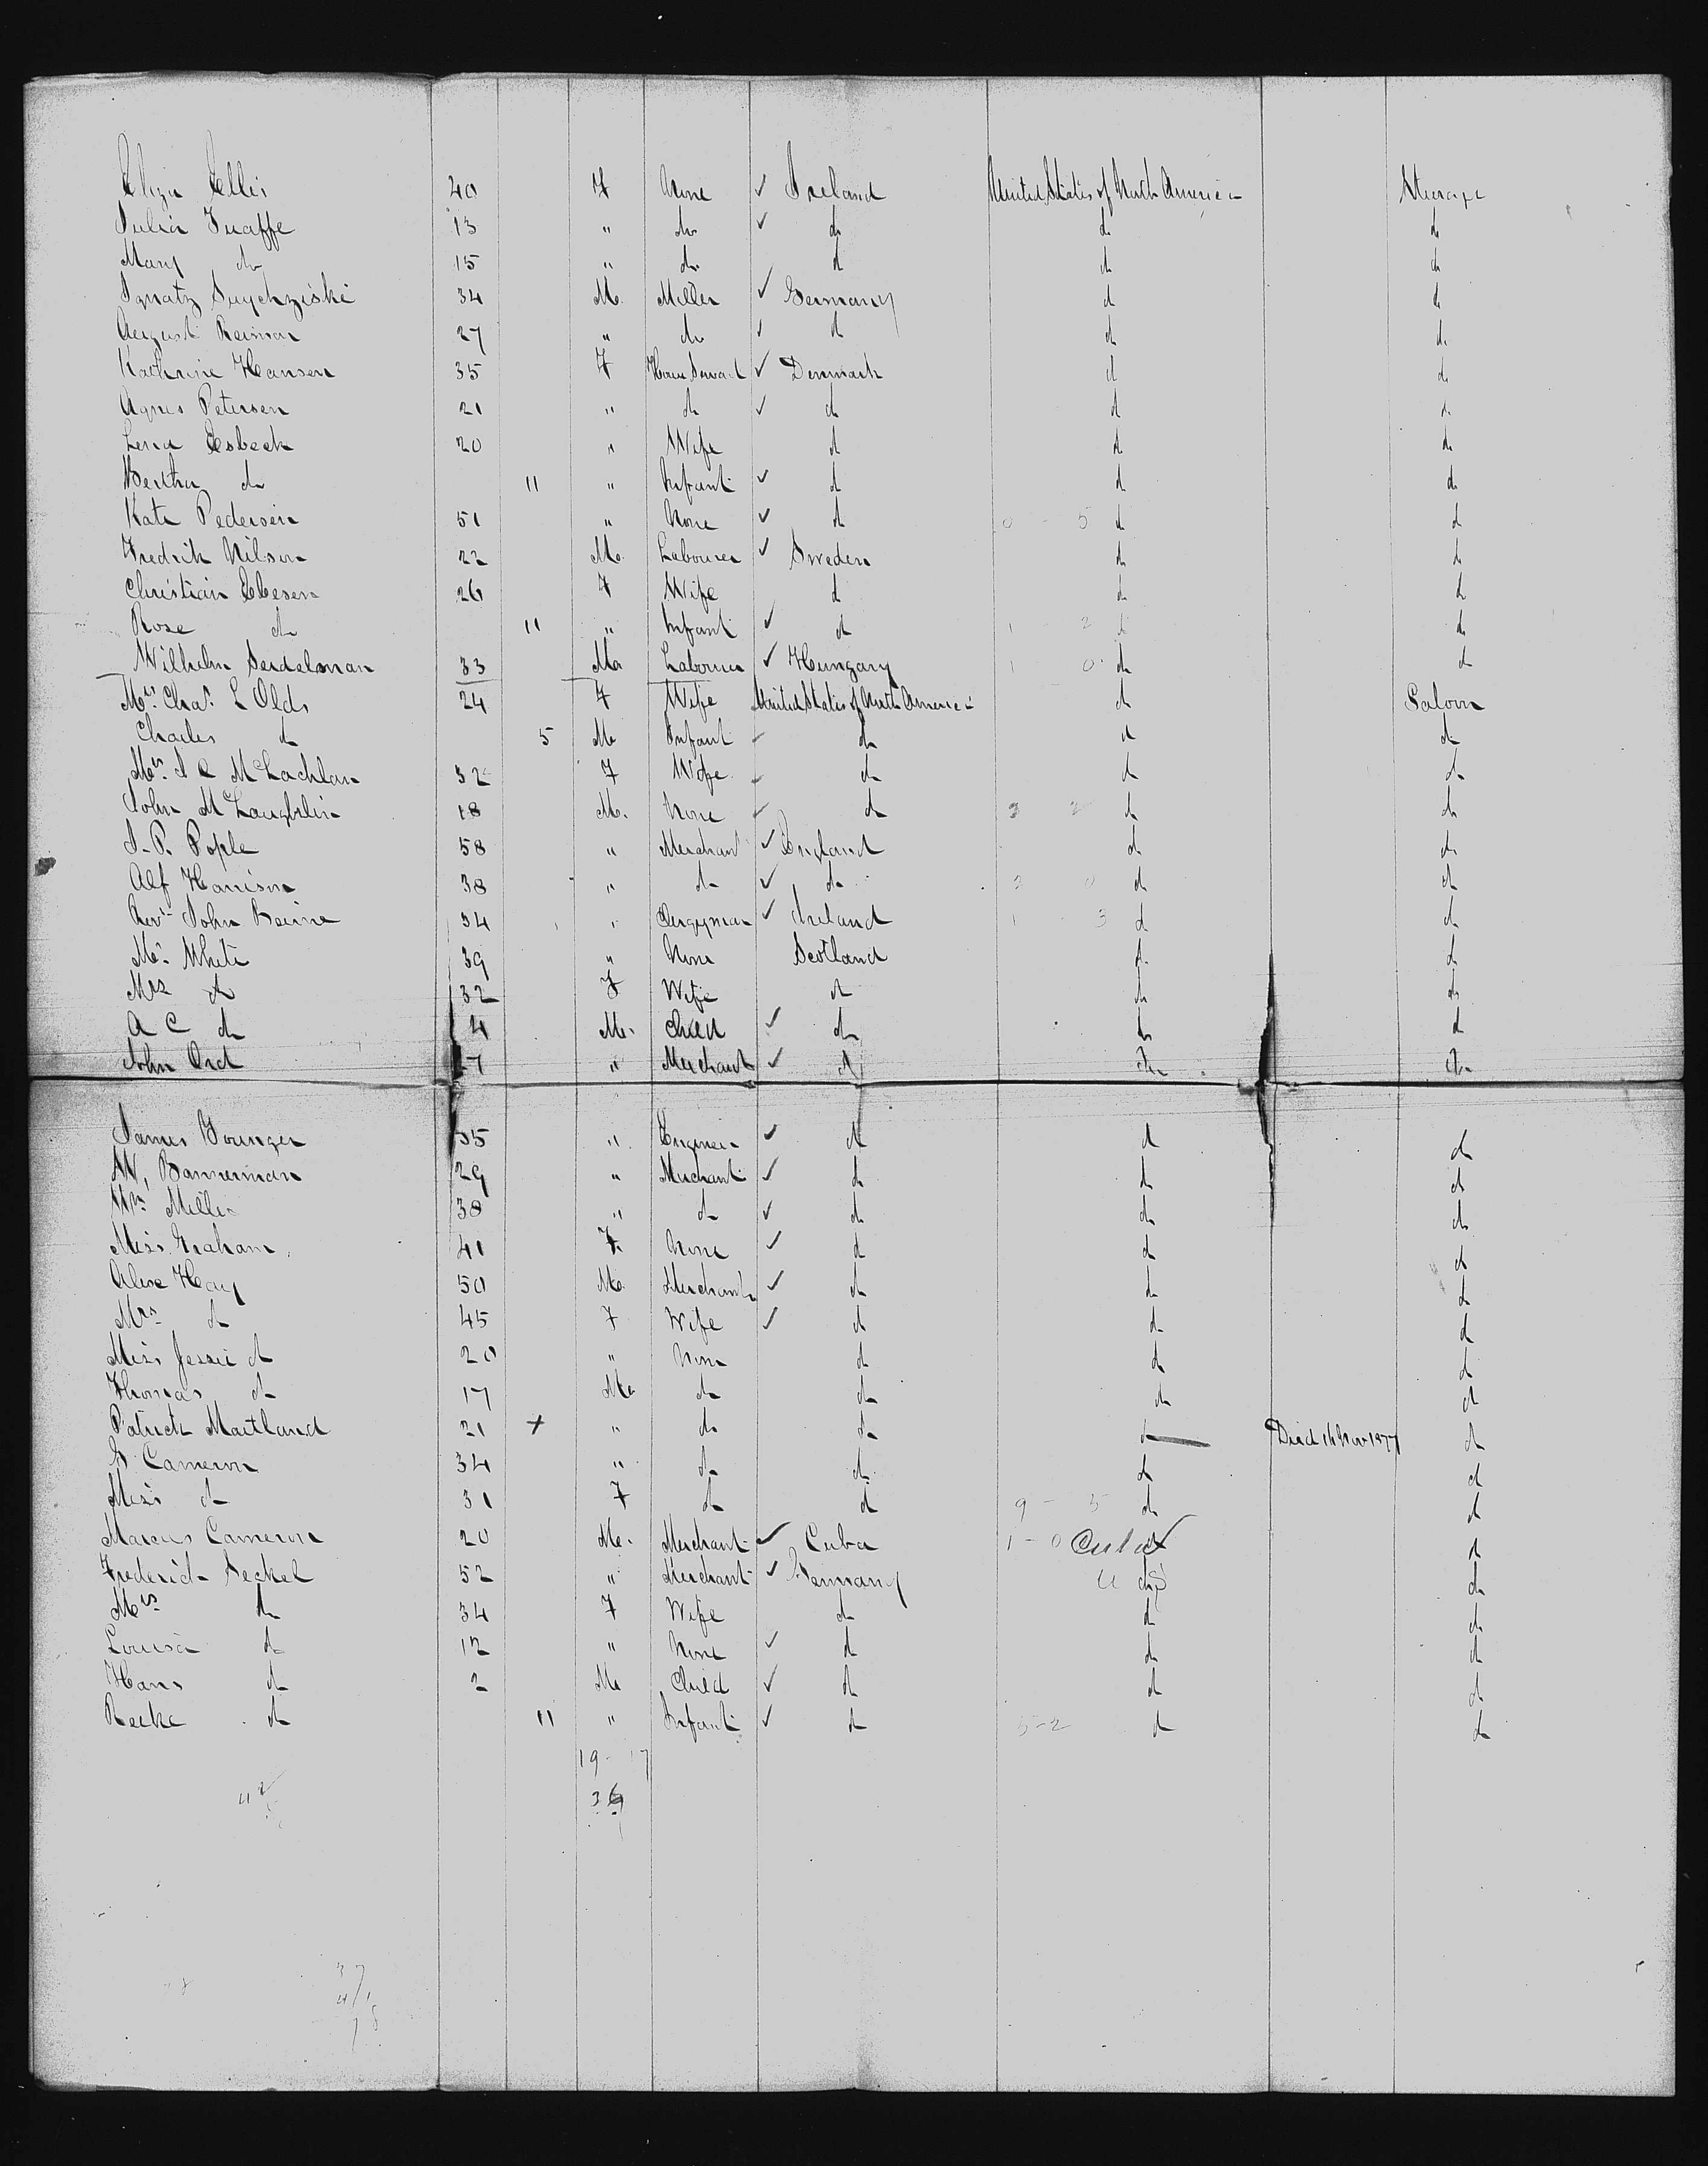 Eliza Ellis 40 F None ✓ Ireland United States of North America Steerage
Julia Fuaffe 13 " do ✓ do do do
Mary do 15 " do d d do
Ignatz 34 M. Miller ✓ Germany d do
August Reiman 27 " do ✓ d d do
Kathrine Hansen 35 F House Servant ✓ Denmark d do
Agnes Petersen 21 " do ✓ do d do
Lena Esbeck 20 " Wife d d do
Bertha do 11 " Infant ✓ d d do
Kate Pedersen 51 " None ✓ d 0 - 5 d d
Fredrik Nilson 22 M. Labourer ✓ Sweden do do
Christian Ebesen 26 F Wife d do do
Rose do 11 " Infant ✓ d 1 2 d do
Wilhelm Seidelman 33 M Labourer ✓ Hungary 1 0 do d
Mrs Chas L Olds 24 F Wife United States of North America d Saloon
Charles d 5 M Infant do d do
Mrs J C McLachlan 32 F Wife do d do
John McLaughlin 18 M. None do 3 2 do do
J. P. Pople 58 " Merchant ✓ England do do
Alf Harrison 38 " do ✓ do 3 0 d do
Revd John Beirne 34 " Clergyman ✓ Ireland 1 - 3 d do
Mr. White 39 " None Scotland d do
Mrs do 32 F Wife d do do
A C do 4 M. Child ✓ do do d
John Ord 7 " Merchant ✓ d do do
James Younger 35 " Engineer ✓ d d do
W, Bannerman 29 " Merchant ✓ do do do
Miller 38 " do ✓ do do do
Miss Graham 41 F. None ✓ d do d
Alex Hay 50 M. Merchant ✓ do do do
Mrs do 45 F Wife ✓ d do d
Miss Jessie d 20 " None d do d
Thomas do 17 M do do do d
Patrick Maitland 21 + " do do do Died 16 Nov 1877 do
G. Cameron 34 " do do do d
Miss d 31 F do d 9 - 5 do d
Marcus Cameron 20 M. Merchant ✓ Cuba 1 - 0 Cuba d
Frederick Seckel 52 " Merchant ✓ Germany U S do
Mrs do 34 F Wife do do do
Louisa do 12 " None ✓ d do d
Hans d 2 M Child ✓ d d d
d 11 " Infant ✓ d 5-2 d do
19 - 17
36